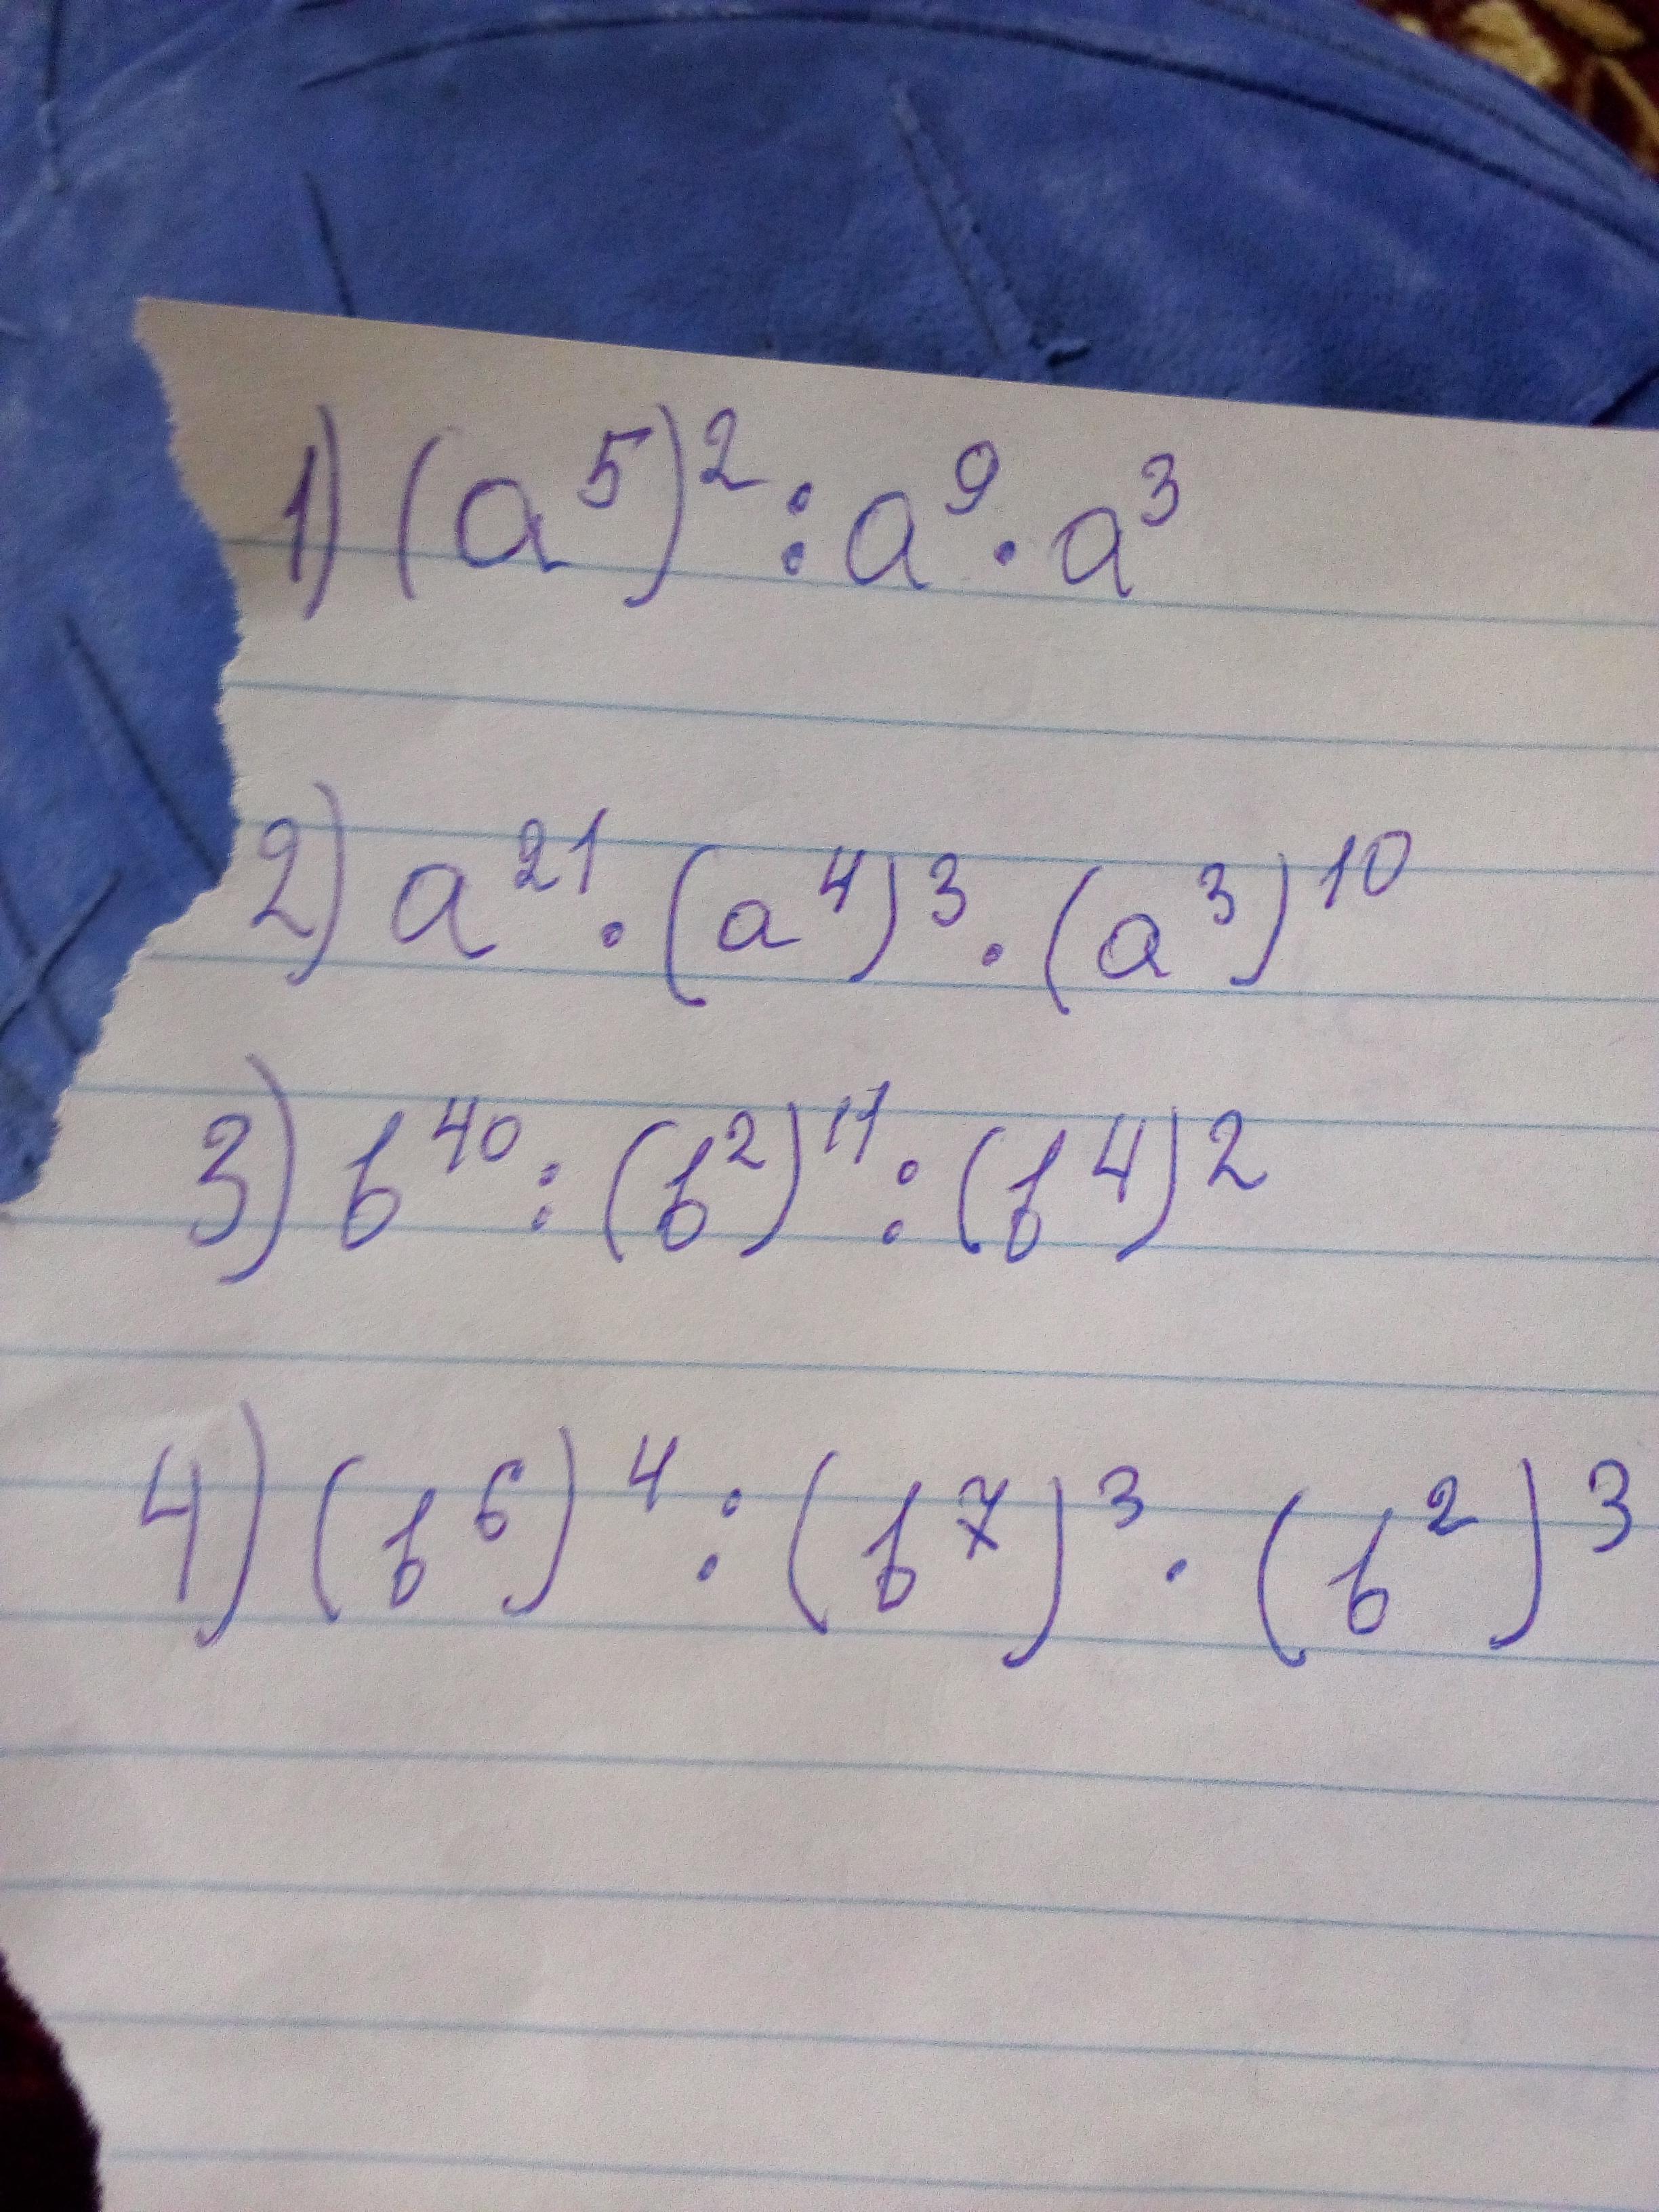 1) (a⁵)² : a⁹ · a³
2) a²¹ · (a⁴)³ · (a³)¹⁰
3) b⁴⁰ : (b²)¹¹ : (b⁴)²
4) (b⁶)⁴ : (b⁷)³ · (b²)³